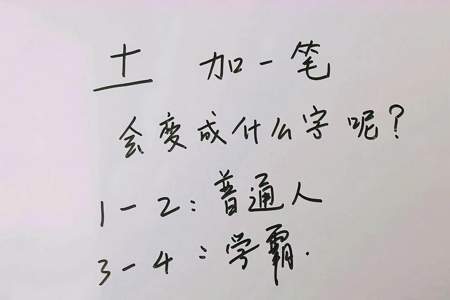 十 加一笔
会变成什么字呢?
1-2:普通人
3-4:学霸.